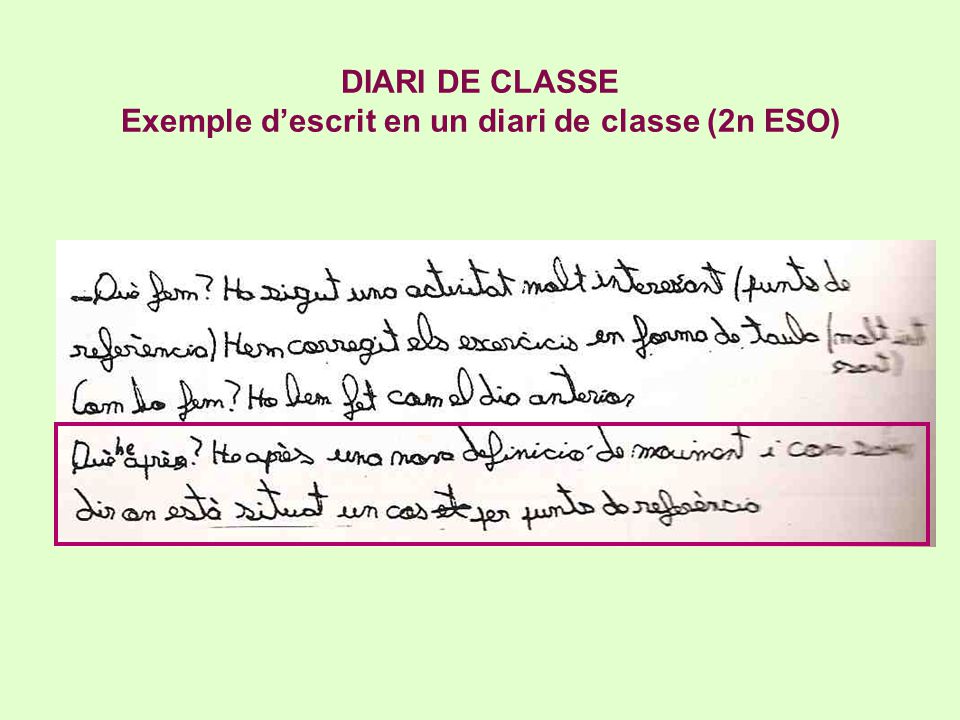 DIARI DE CLASSE
Exemple d’escrit en un diari de classe (2n ESO)
-Què fem? Ha sigut una activitat molt interesant (punts de
referència) Hem corregit els exercicis en forma de taula (molt
Com ho fem? Ho hem fet com el dia anterior
Què he après? He après una nova definició de moviment i com
dir on està situat un cos per punts de referència